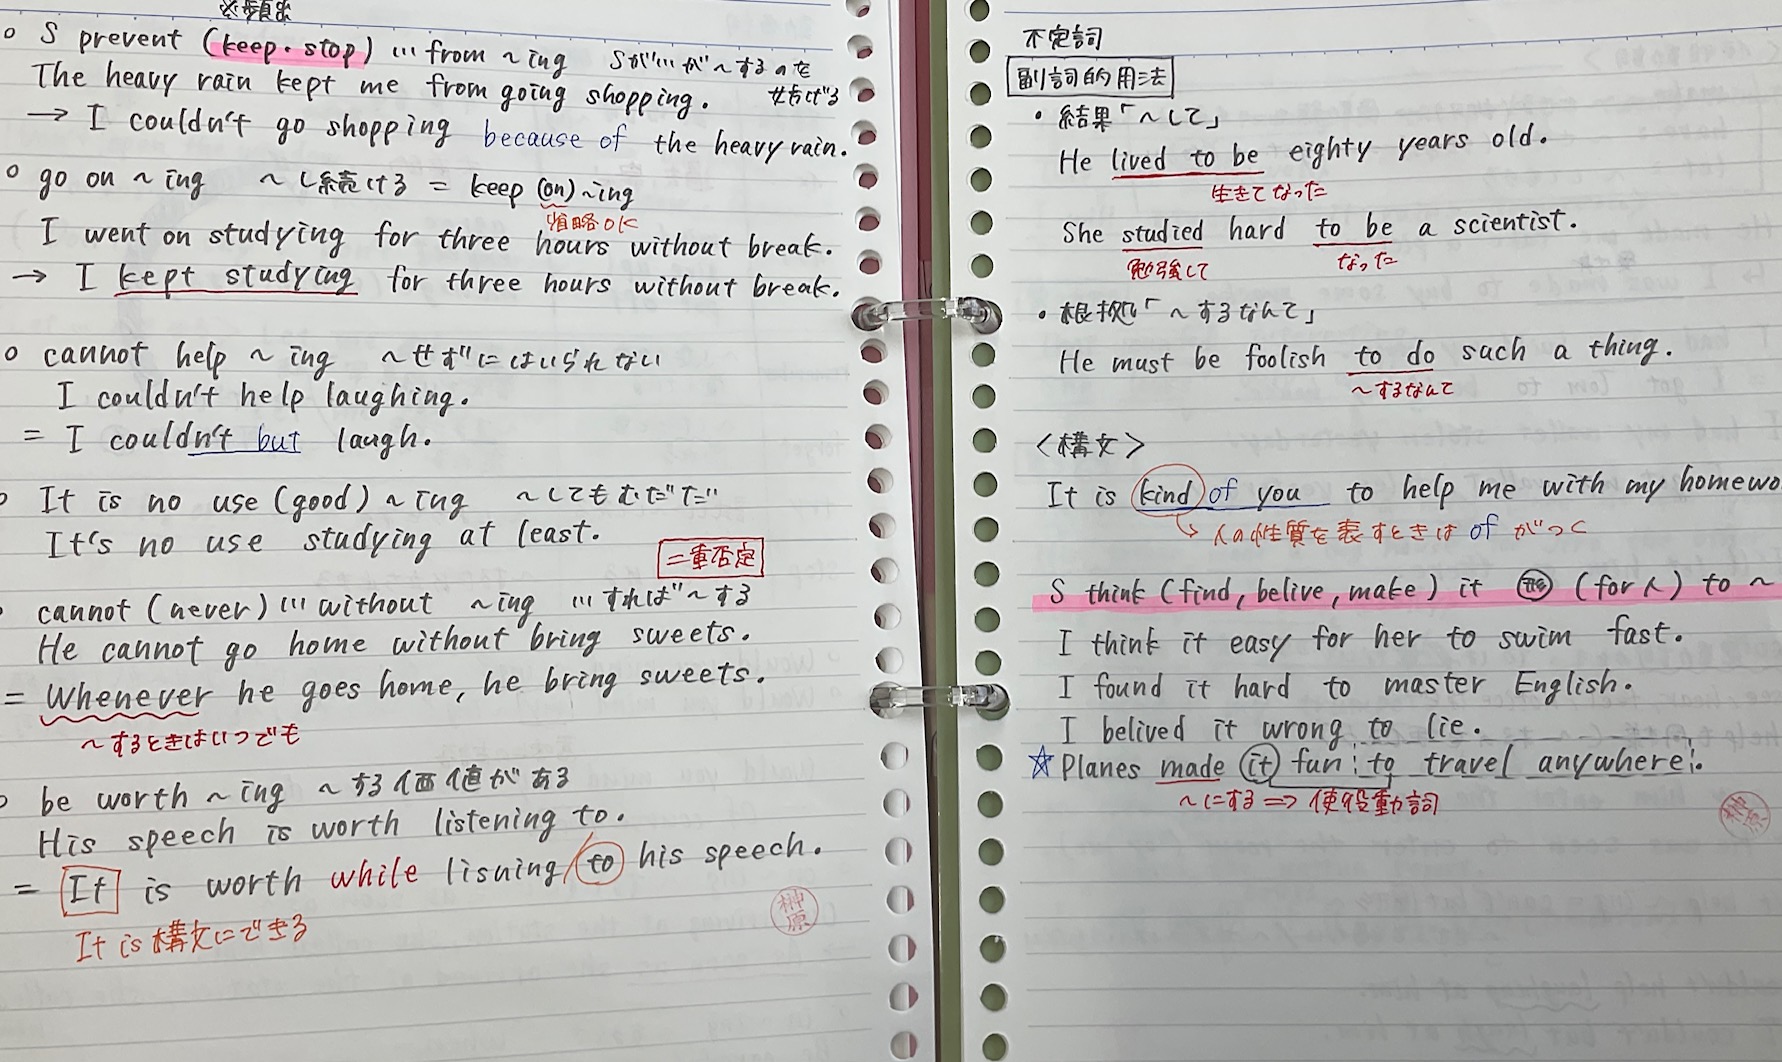 ※頻出
○ S prevent (keep・stop) … from ~ing Sが…が~するのを
妨げる
The heavy rain kept me from going shopping.
→ I couldn't go shopping because of the heavy rain.
○ go on ~ing ~し続ける = keep (on) ~ing
省略OK
I went on studying for three hours without break.
→ I kept studying for three hours without break.
○ cannot help ~ing ~せずにはいられない
I couldn't help laughing.
= I couldn't but laugh.
○ It is no use (good) ~ing ~してもむだだ
It's no use studying at least.
二重否定
○ cannot (never) … without ~ing …すれば~する
He cannot go home without bring sweets.
= Whenever he goes home, he bring sweets.
~するときはいつでも
○ be worth ~ing ~する価値がある
His speech is worth listening to.
= It is worth while lisning to his speech.
It is構文にできる
榊原
不定詞
副詞的用法
・結果「~して」
He lived to be eighty years old.
生きてなった
She studied hard to be a scientist.
勉強して なった
・根拠「~するなんて」
He must be foolish to do such a thing.
~するなんて
<構文>
It is kind of you to help me with my homewo
↳ 人の性質を表すときは of がつく
S think (find, belive, make) it 形 (for 人) to ~
I think it easy for her to swim fast.
I found it hard to master English.
I belived it wrong to lie.
☆Planes made it fun to travel anywhere.
~にする ⇒ 使役動詞
榊原